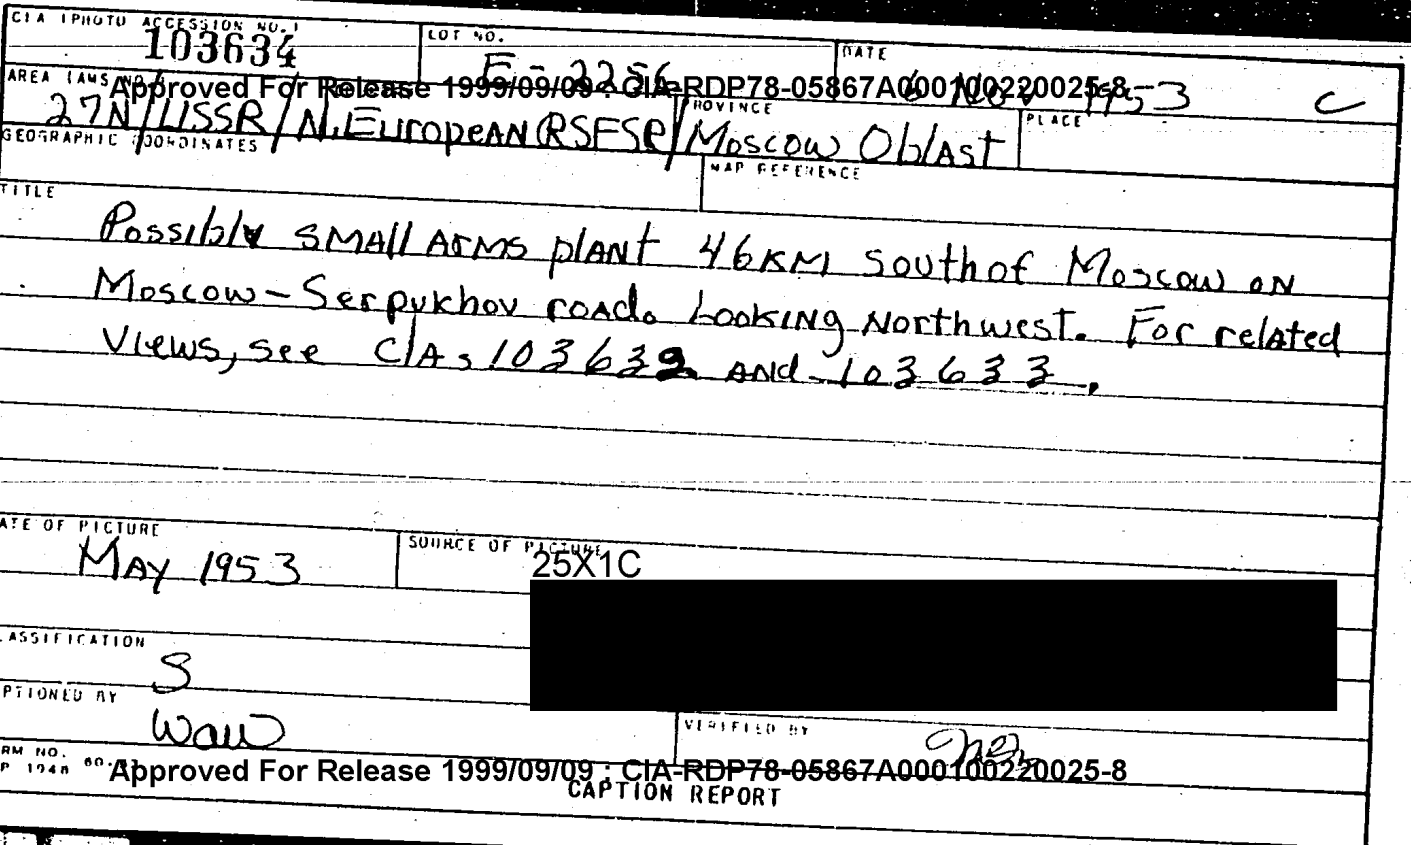 CIA (PHOTO ACCESSION NO.)
103634
LOT NO.
E-2256
DATE
6 Nov 1953 C
AREA (AMS NO.)
Approved For Release 1999/09/09 : CIA-RDP78-05867A000100220025-8
27N/USSR/N. European RSFSR/
PROVINCE
Moscow Oblast
PLACE
GEOGRAPHIC COORDINATES
MAP REFERENCE
TITLE
Possibly small arms plant 46 KM south of Moscow on
Moscow-Serpukhov road. Looking Northwest. For related
Views, see CIAs 103632 and 103633.
ATE OF PICTURE
May 1953
SOURCE OF PICTURE
25X1C
LASSIFICATION
S
PTIONED BY
Waw
VERIFIED BY
RM NO.
P 1948 60-
Approved For Release 1999/09/09 : CIA-RDP78-05867A000100220025-8
CAPTION REPORT